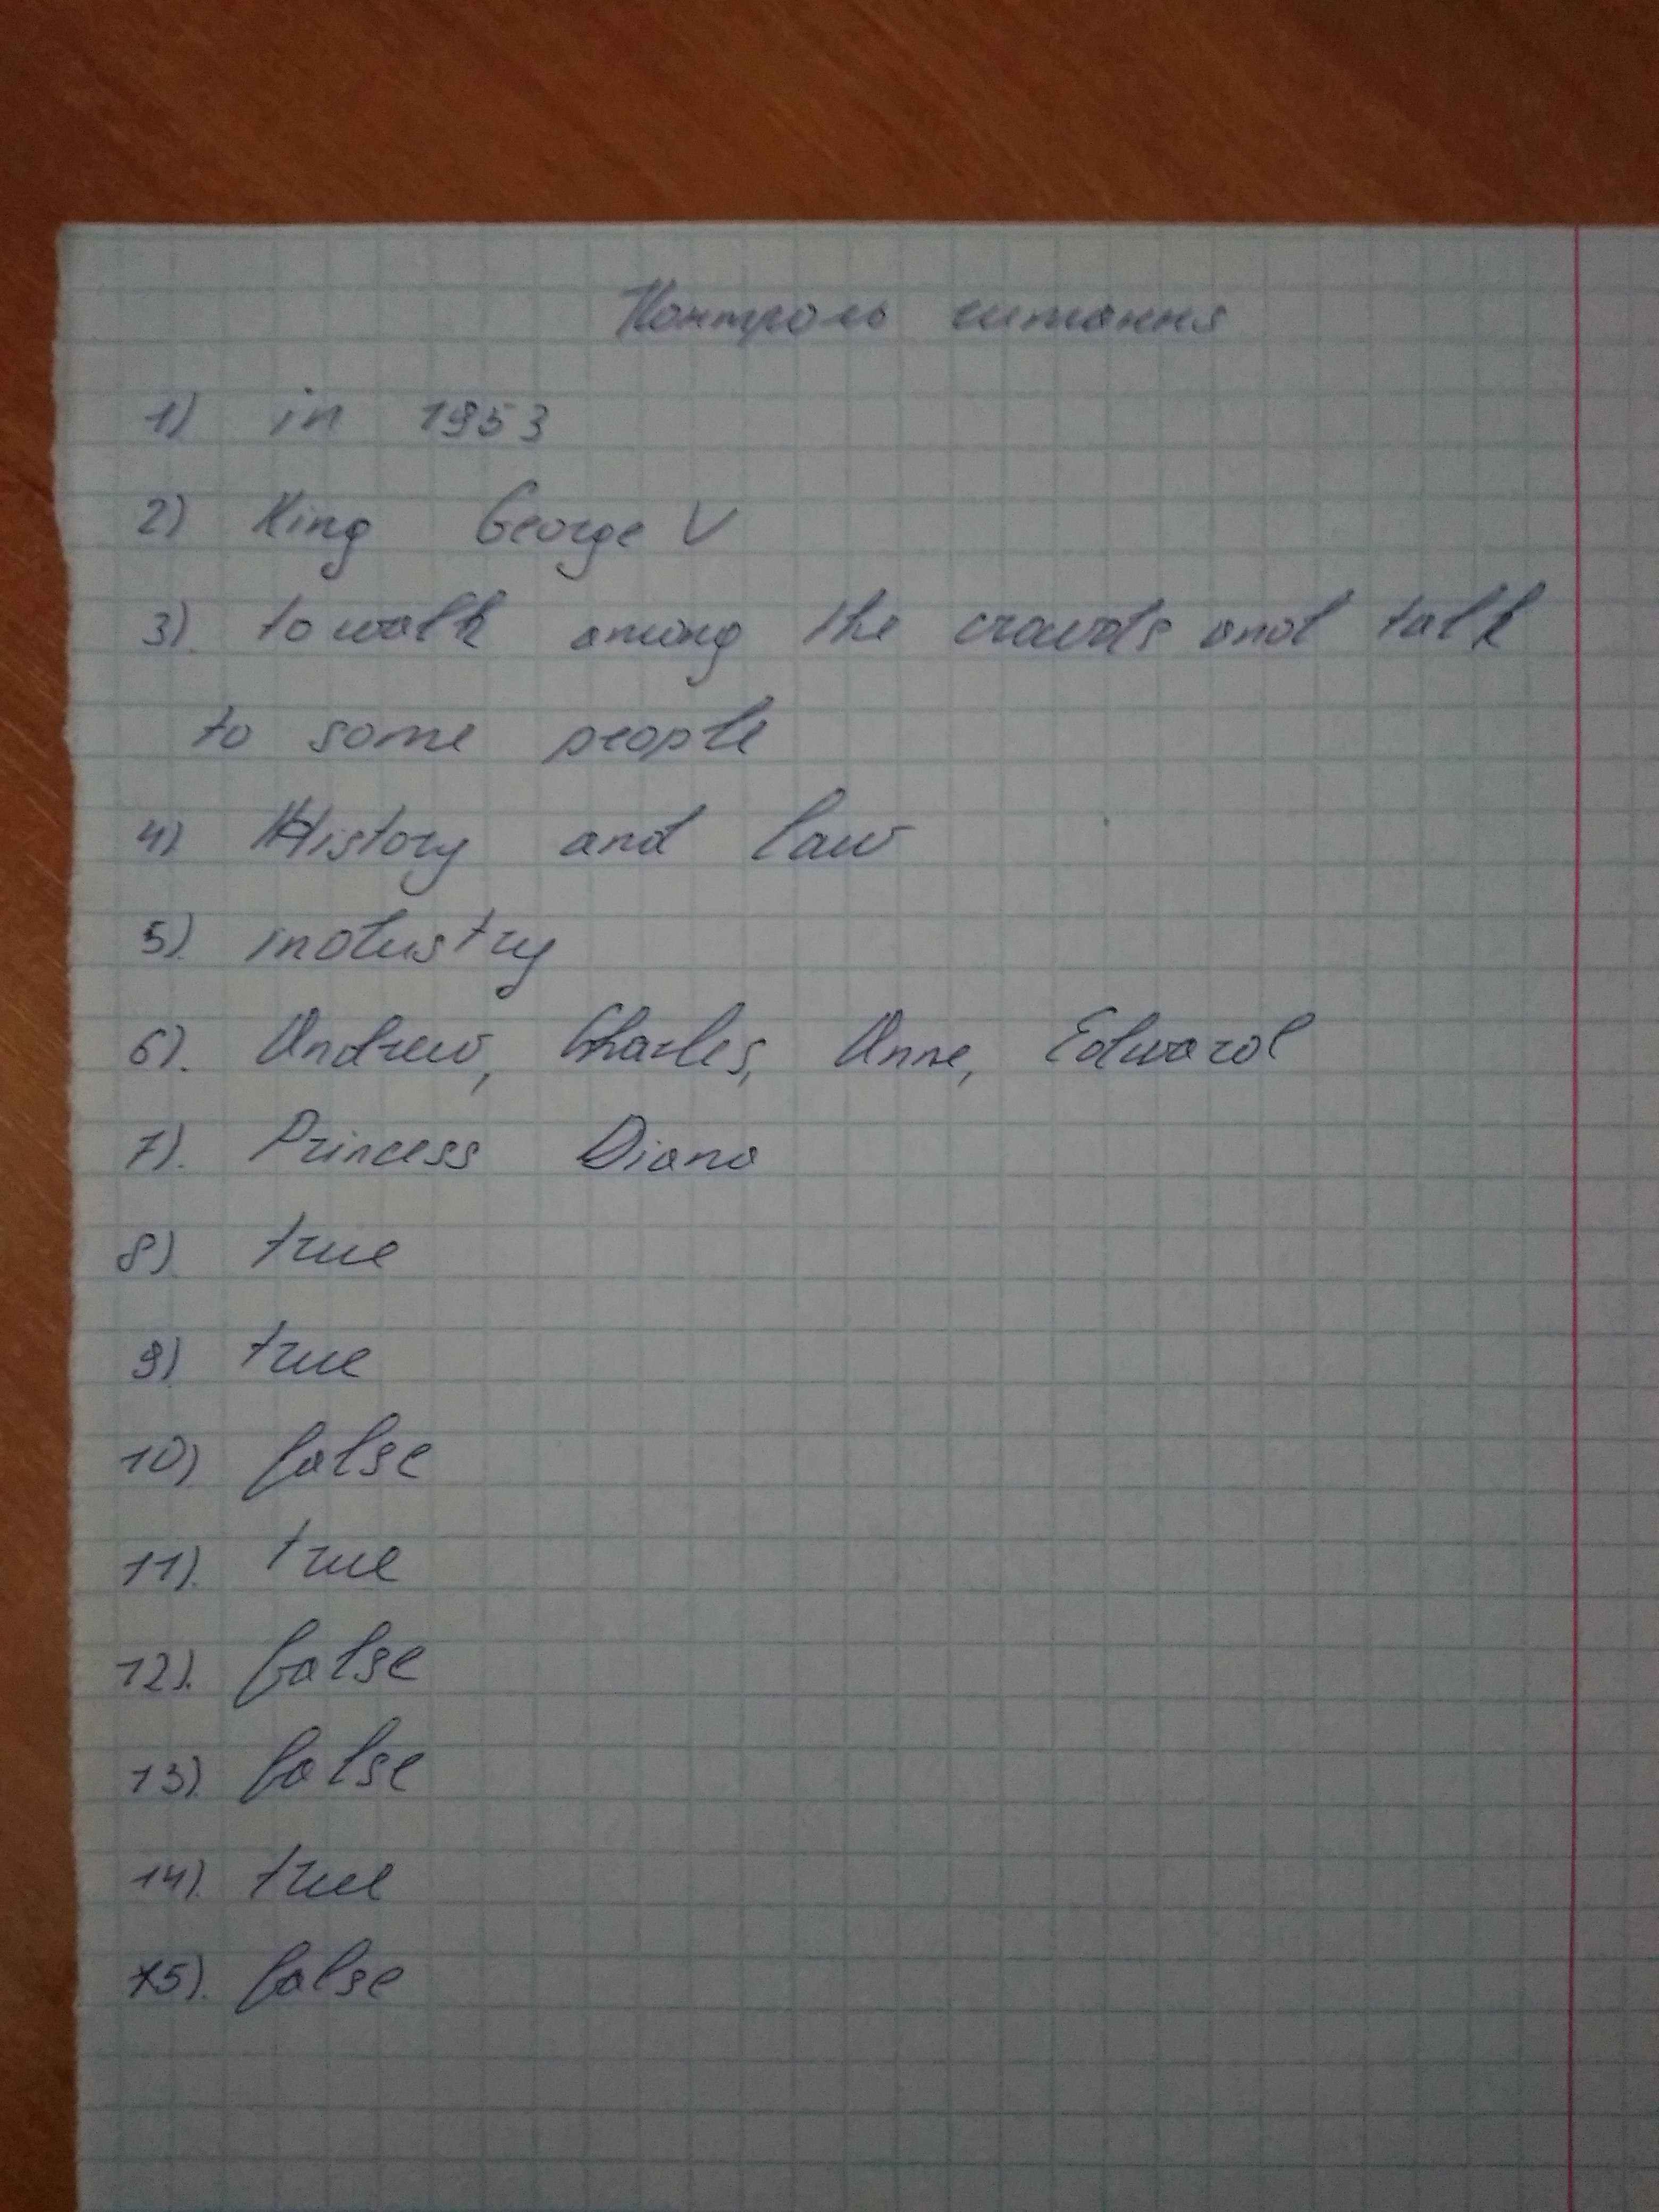 Контроль читання
1) in 1953
2) King George V
3). to walk among the crowds and talk
to some people
4) History and law
5). industry
6). Andrew, Charles, Anne, Edward
7). Princess Diana
8). true
9) true
10) false
11). true
12). false
13). false
14). true
15). false